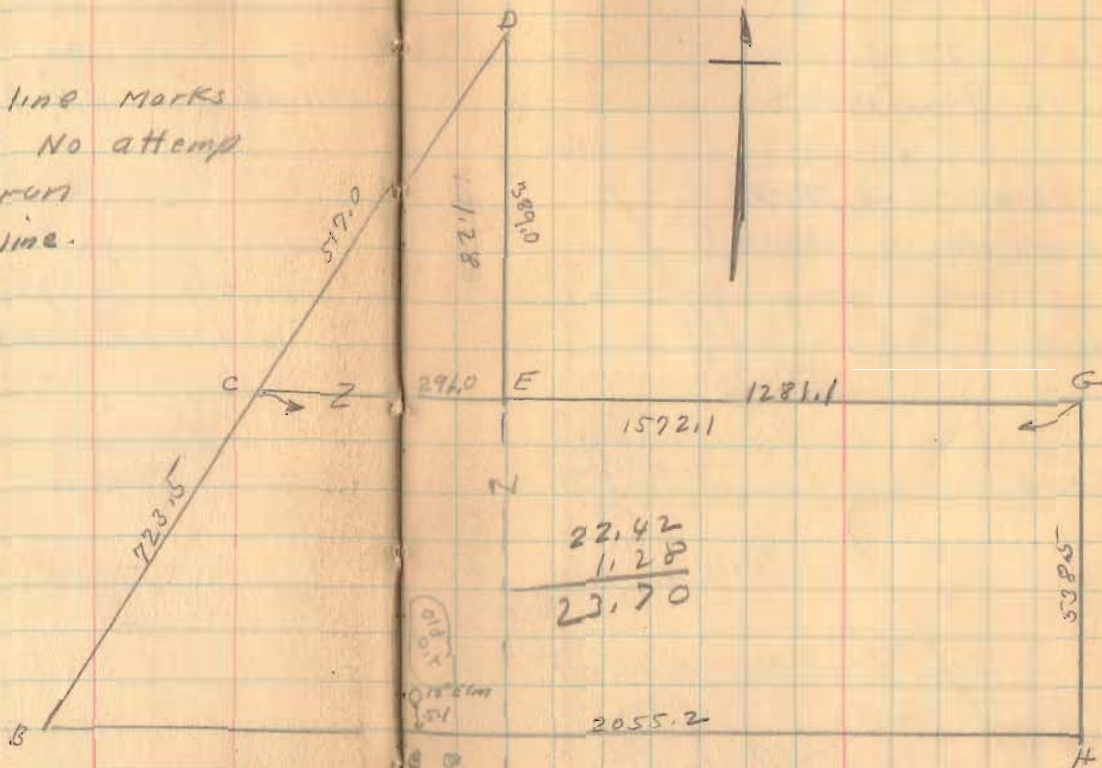 D
line Marks
No attemp
run
line.
517.0
1.28
389.0
C
Z
296.0
E
1281.1
G
1572.1
723.5
Z
22.42
1.28
23.70
538.5
old
18" Elm
51
B
2055.2
H